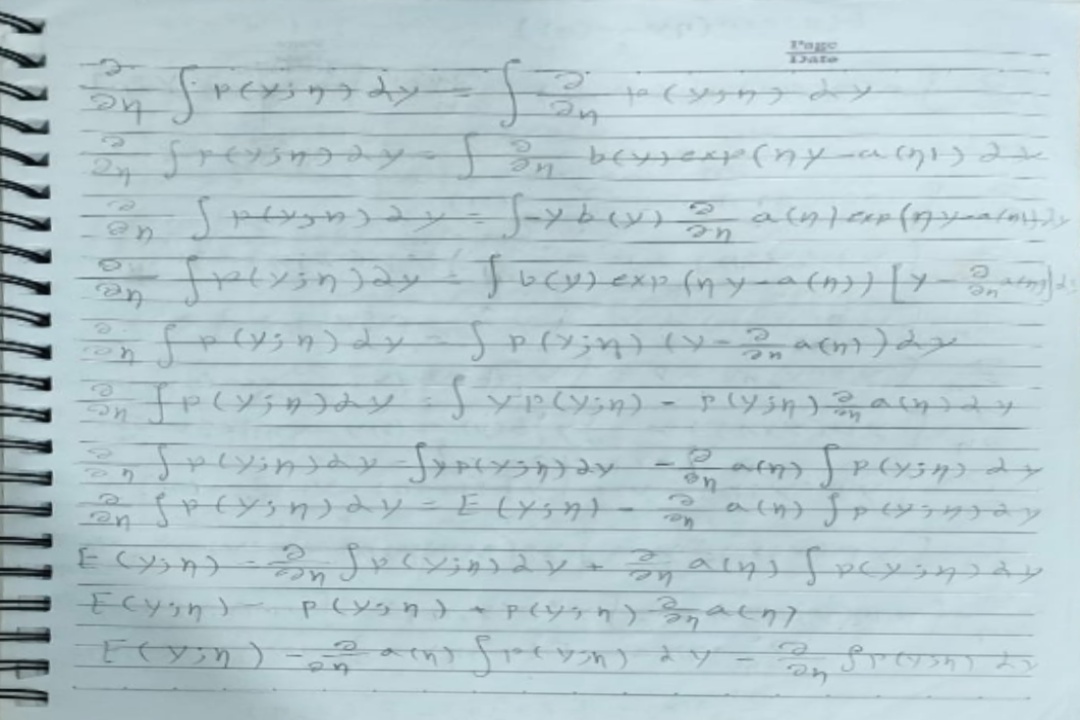 Page
Date
∂/∂η ∫ p(y;η) dy = ∫ ∂/∂η p(y;η) dy
∂/∂η ∫ p(y;η) dy = ∫ ∂/∂η b(y) exp(ηy - a(η)) dy
∂/∂η ∫ p(y;η) dy = ∫ y b(y) ∂/∂η a(η) exp(ηy - a(η)) dy
∂/∂η ∫ p(y;η) dy = ∫ b(y) exp(ηy - a(η)) [y - ∂/∂η a(η)] dy
∂/∂η ∫ p(y;η) dy = ∫ p(y;η) (y - ∂/∂η a(η)) dy
∂/∂η ∫ p(y;η) dy = ∫ y p(y;η) - p(y;η) ∂/∂η a(η) dy
∂/∂η ∫ p(y;η) dy = ∫ y p(y;η) dy - ∂/∂η a(η) ∫ p(y;η) dy
∂/∂η ∫ p(y;η) dy = E(y;η) - ∂/∂η a(η) ∫ p(y;η) dy
E(y;η) = ∂/∂η ∫ p(y;η) dy + ∂/∂η a(η) ∫ p(y;η) dy
E(y;η) = p(y;η) + p(y;η) ∂/∂η a(η)
E(y;η) = ∂/∂η a(η) ∫ p(y;η) dy - ∂/∂η ∫ p(y;η) dy